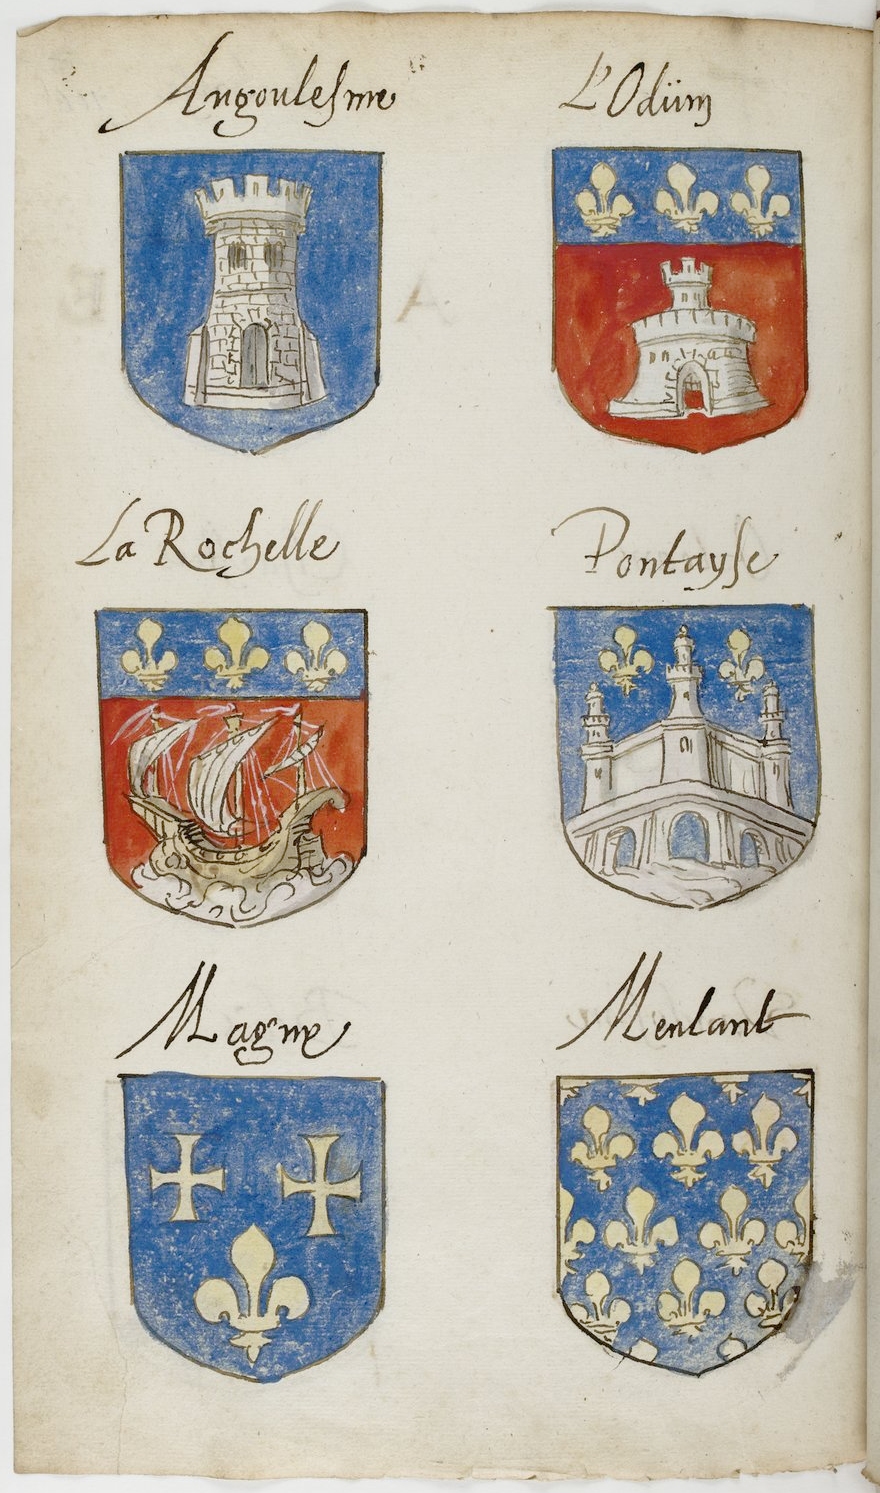 Angoulesme
L'Odüm
La Rochelle
Pontayse
Magne
Menlant